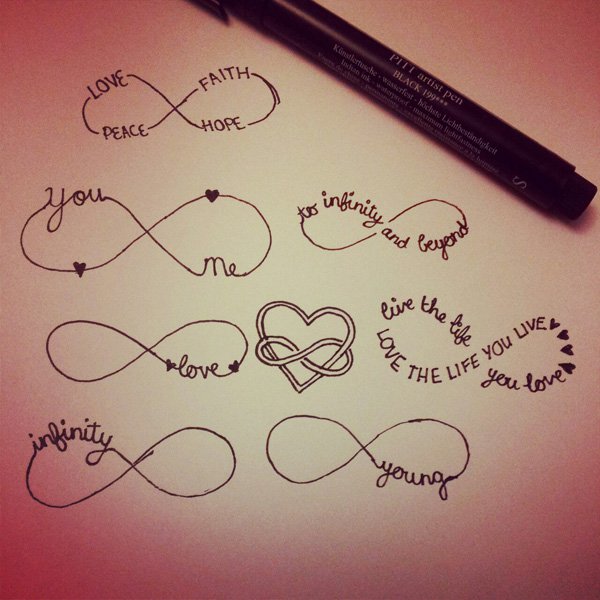 LOVE FAITH
PEACE HOPE
PITT artist pen
BLACK 199***
Künstlertusche - wasserfest - höchste Lichtbeständigkeit
S
you
me
to infinity
and beyond
love
live the life
LOVE THE LIFE YOU LIVE
you love
infinity
young